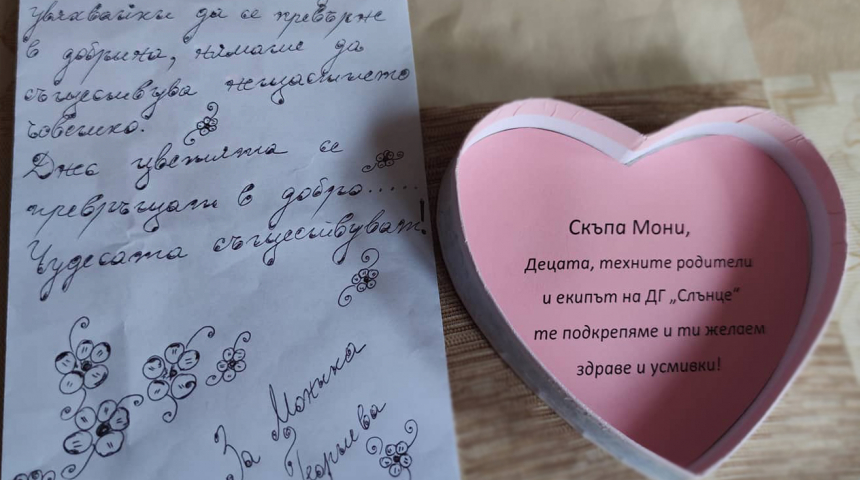 увяхвайки да се превърже
в добрина, нямаше да
съществува нещастието
човешко.
Дже цветята се
превръщат в добро.....
Чудесата съществуват!
За Моника
Скъпа Мони,
Децата, техните родители
и екипът на ДГ „Слънце“
те подкрепяме и ти желаем
здраве и усмивки!